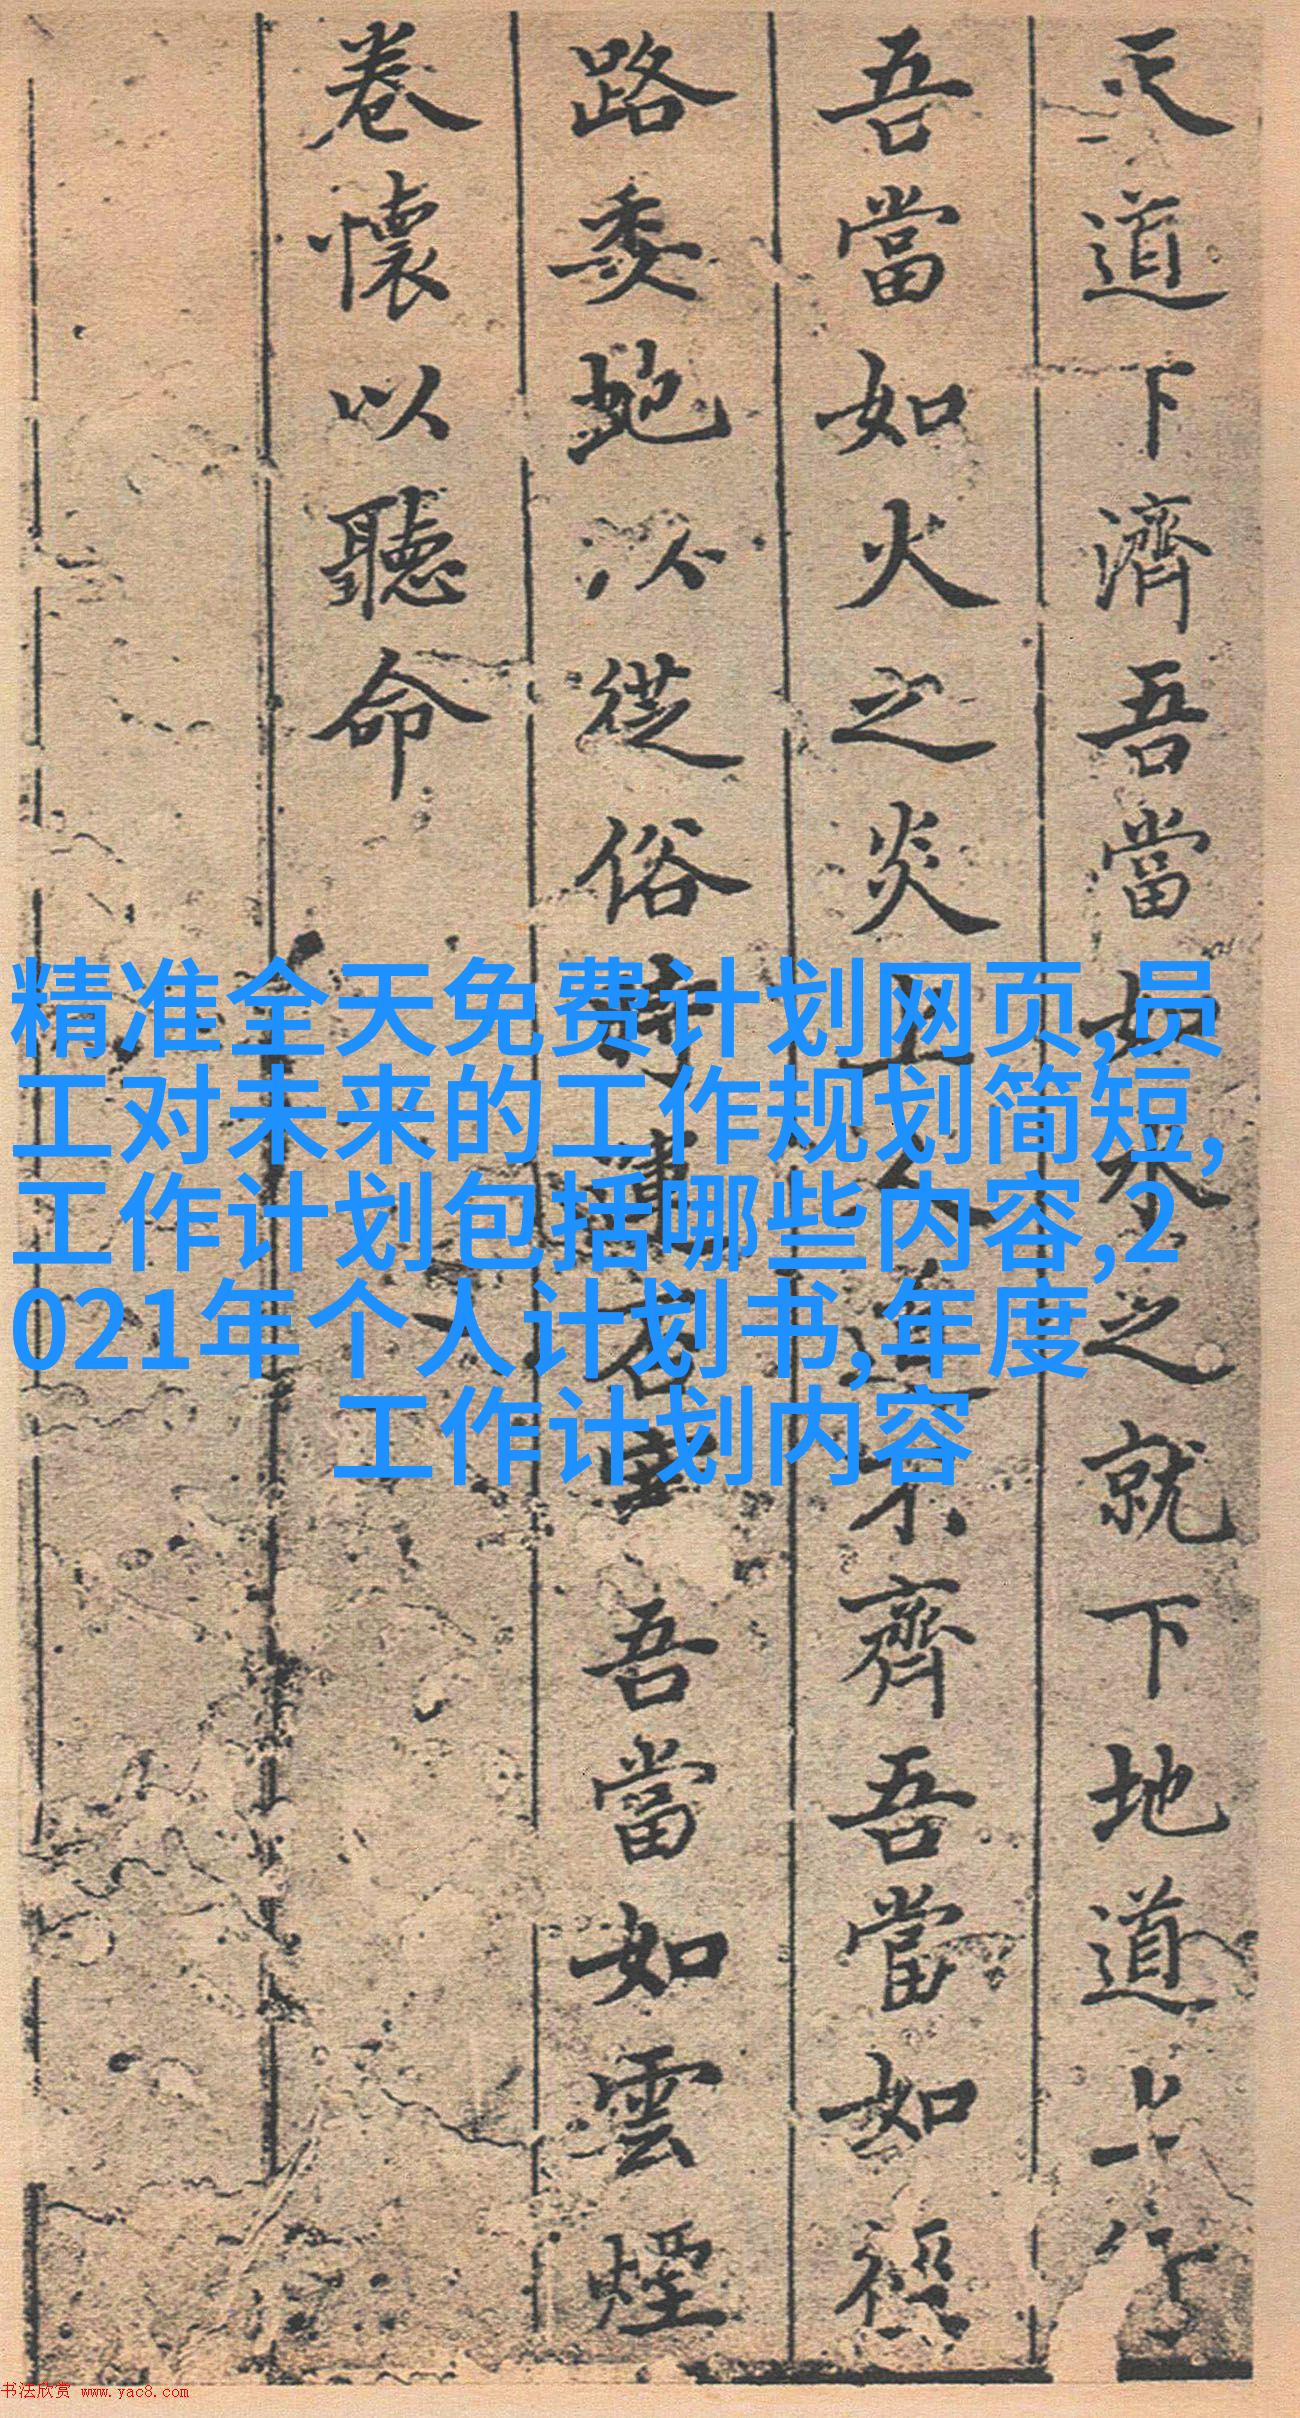 天道下濟吾當如水之就下地道上行
吾當如火之炎上人生不齊吾當如徑
路委虵以從俗時遭否塞吾當如雲煙
卷懷以聽命
精准全天免费计划网页,员
工对未来的工作规划简短,
工作计划包括哪些内容,2
021年个人计划书,年度
工作计划内容
书法欣赏 www.yac8.com